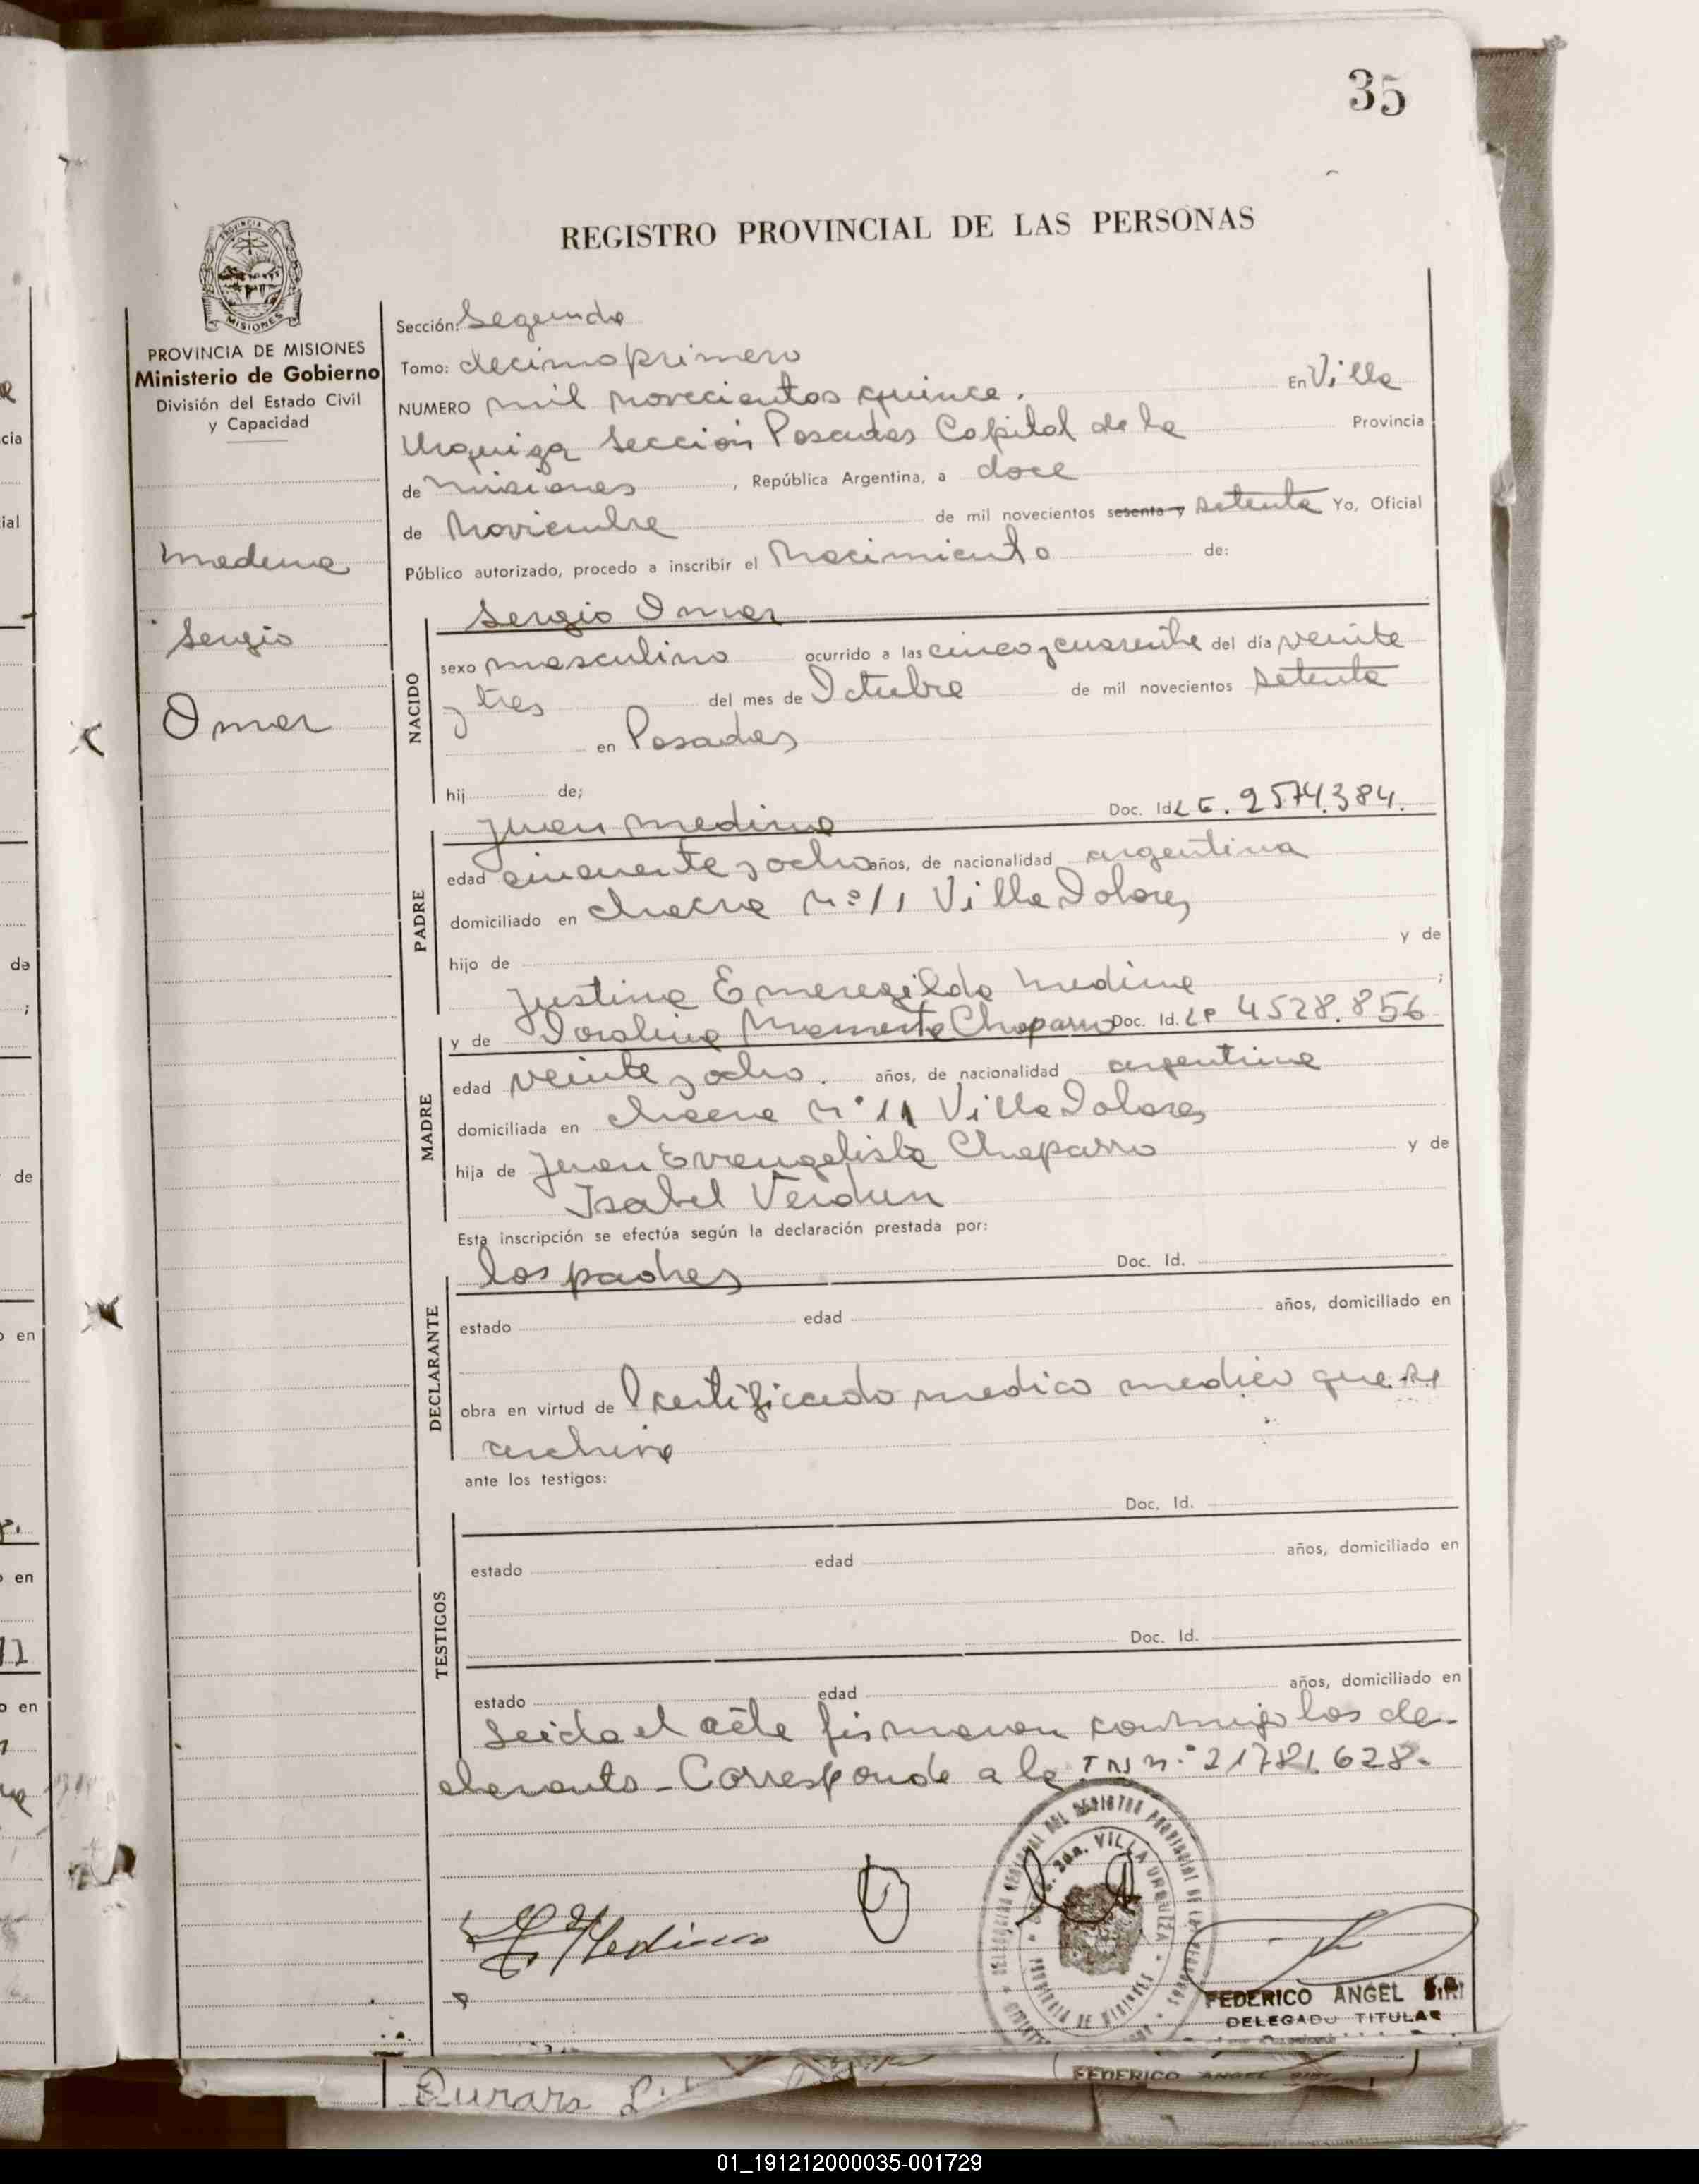 35
REGISTRO PROVINCIAL DE LAS PERSONAS
PROVINCIA DE MISIONES
Ministerio de Gobierno
División del Estado Civil
y Capacidad
Medina
Sergio
Omar
Sección: Segunda
Tomo: decimo primero
NUMERO mil novecientos quince. En Villa
Urquiza Sección Posadas Capital de la Provincia
de Misiones, República Argentina, a doce
de Noviembre de mil novecientos sesenta y setenta Yo, Oficial
Público autorizado, procedo a inscribir el Nacimiento de:
NACIDO
Sergio Omar
sexo masculino ocurrido a las cinco y cuarenta del día veinte
y tres del mes de Octubre de mil novecientos setenta
en Posadas
hij de;
PADRE
Juan Medina Doc. Id. L E. 2574.384.
edad cincuenta y ocho años, de nacionalidad argentina
domiciliado en chacra Nº 11 Villa Dolores
hijo de y de
Justina Emeregilda Medina ;
MADRE
y de Chaparro Doc. Id. 4528.856
edad veinte y ocho. años, de nacionalidad argentina
domiciliada en chacra Nº 11 Villa Dolores
hija de Juan Evangelista Chaparro y de
Isabel Verdun
Esta inscripción se efectúa según la declaración prestada por:
DECLARANTE
los padres Doc. Id.
estado edad años, domiciliado en
obra en virtud de certificado medico medico que se
archiva
ante los testigos:
TESTIGOS
Doc. Id.
estado edad años, domiciliado en
Doc. Id.
estado edad años, domiciliado en
Leida el acta firmaron conmigo los de-
clarantes - Corresponde a la n.º 21781.628.
Medina
VILLA URQUIZA
PROVINCIA DE MISIONES
FEDERICO ANGEL
DELEGADO TITULAR
FEDERICO ANGEL
01_191212000035-001729